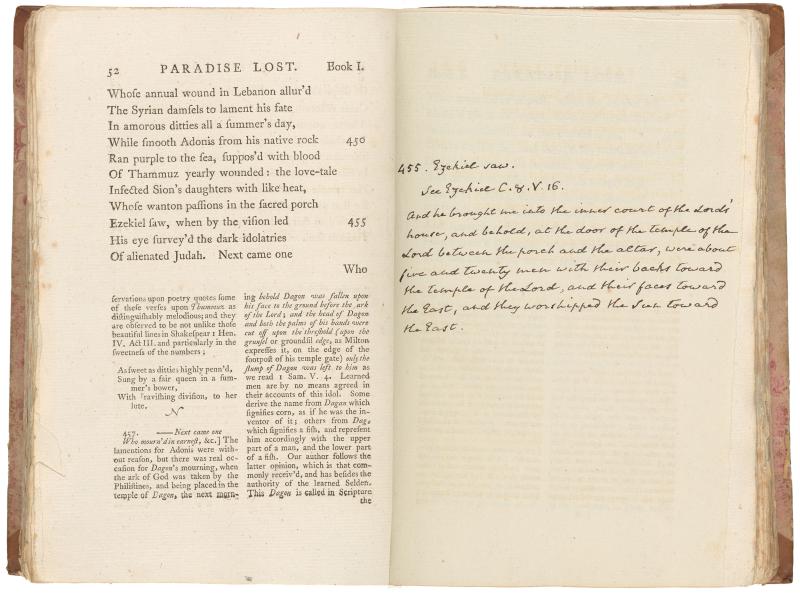 52 PARADISE LOST. Book I.
Whoſe annual wound in Lebanon allur'd
The Syrian damſels to lament his fate
In amorous ditties all a ſummer's day,
While ſmooth Adonis from his native rock 450
Ran purple to the ſea, ſuppos'd with blood
Of Thammuz yearly wounded: the love-tale
Infected Sion's daughters with like heat,
Whoſe wanton paſſions in the ſacred porch
Ezekiel ſaw, when by the viſion led 455
His eye ſurvey'd the dark idolatries
Of alienated Judah. Next came one
Who
ſervations upon poetry quotes ſome
of theſe verſes upon Thammuz as
diſtinguiſhably melodious; and they
are obſerved to be not unlike thoſe
beautiful lines in Shakeſpear 1 Hen.
IV. Act III. and particularly in the
ſweetneſs of the numbers;
As ſweet as ditties highly penn'd,
Sung by a fair queen in a ſum-
mer's bower,
With raviſhing diviſion, to her
lute.
N
457. —Next came one
Who mourn'd in earneſt, &c.] The
lamentations for Adonis were with-
out reaſon, but there was real oc-
caſion for Dagon's mourning, when
the ark of God was taken by the
Philiſtines, and being placed in the
temple of Dagon, the next morn-
ing behold Dagon was fallen upon
his face to the ground before the ark
of the Lord; and the head of Dagon
and both the palms of his hands were
cut off upon the threſhold (upon the
grunſel or groundſil edge, as Milton
expreſſes it, on the edge of the
footpoſt of his temple gate) only the
ſtump of Dagon was left to him as
we read 1 Sam. V. 4. Learned
men are by no means agreed in
their accounts of this idol. Some
derive the name from Dagan which
ſignifies corn, as if he was the in-
ventor of it; others from Dag,
which ſignifies a fiſh, and repreſent
him accordingly with the upper
part of a man, and the lower part
of a fiſh. Our author follows the
latter opinion, which is that com-
monly receiv'd, and has beſides the
authority of the learned Selden.
This Dagon is called in Scripture
the
455. Ezekiel saw.
See Ezekiel C. 8. V. 16.
And he brought me into the inner court of the Lord's
house, and behold, at the door of the temple of the
Lord between the porch and the altar, were about
five and twenty men with their backs toward
the temple of the Lord, and their faces toward
the East, and they worshipped the Sun toward
the East.